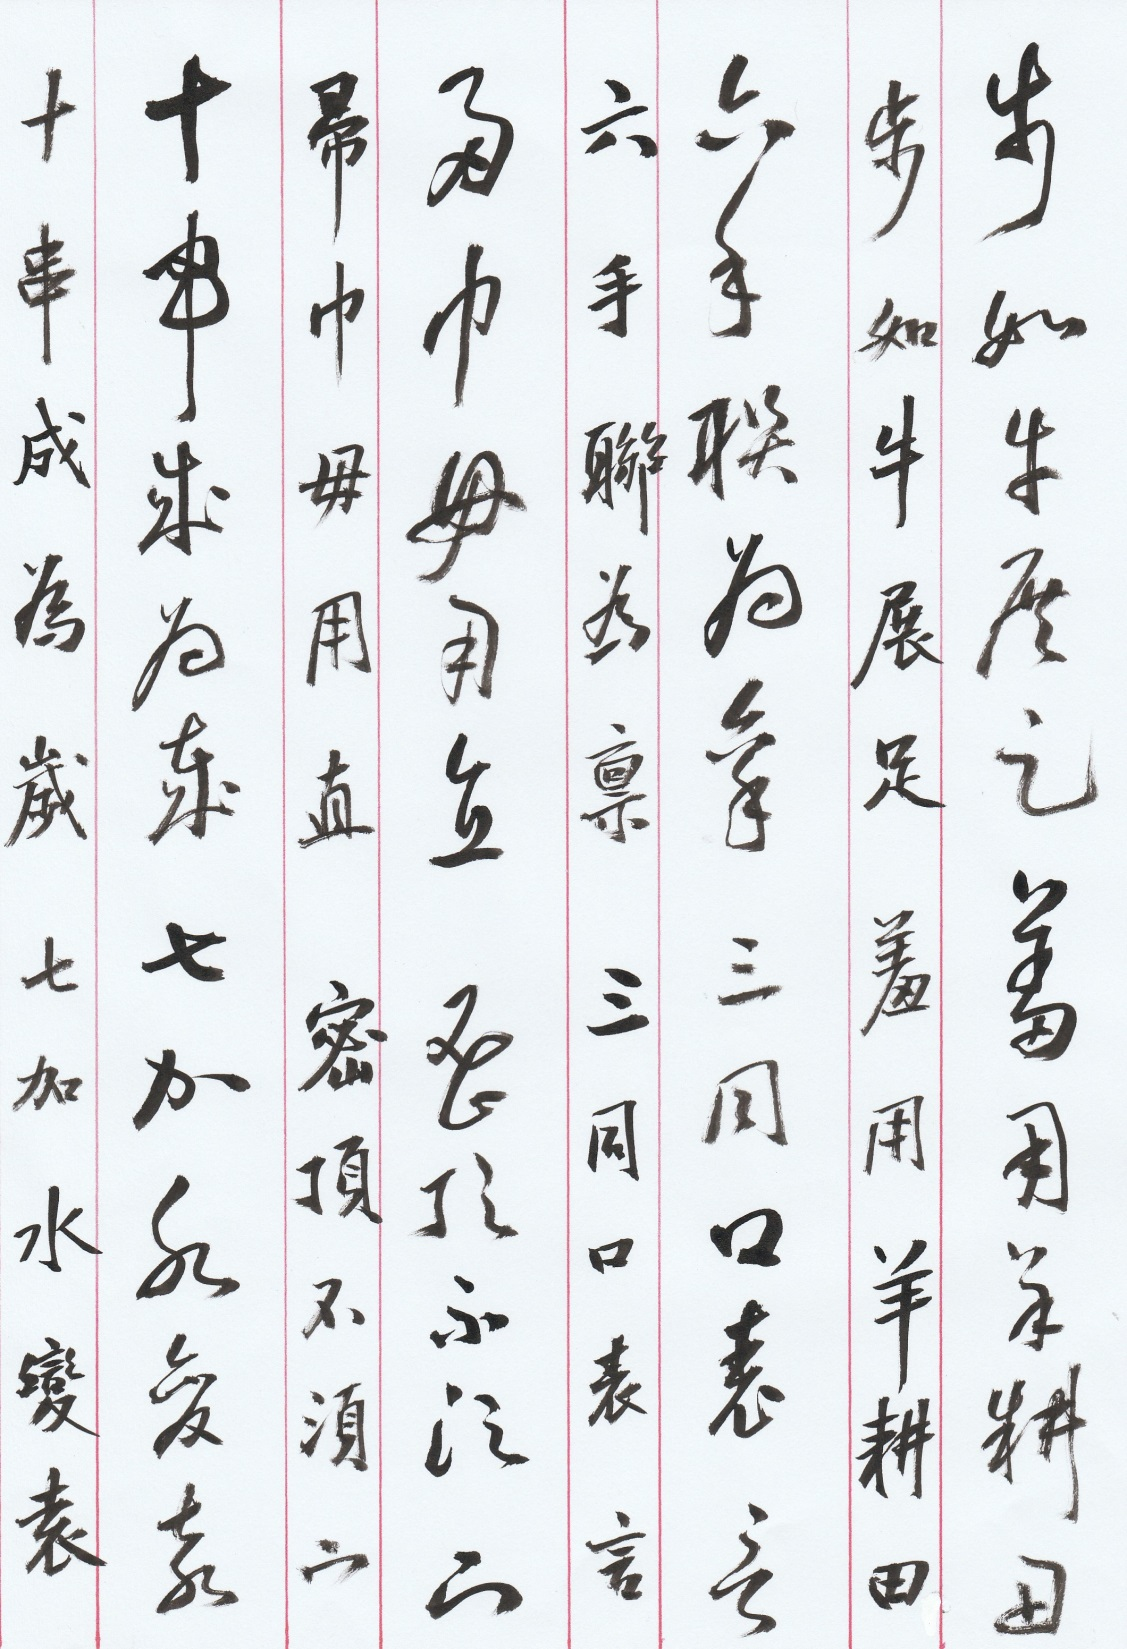 步如牛展足 羞用羊耕田
步如牛展足 羞用羊耕田
六手聯為稟 三同口表言
六手聯為稟 三同口表言
帚巾毋用直 密頂不須宀
帚巾毋用直 密頂不須宀
十串成為歲 七加水變袁
十串成為歲 七加水變袁